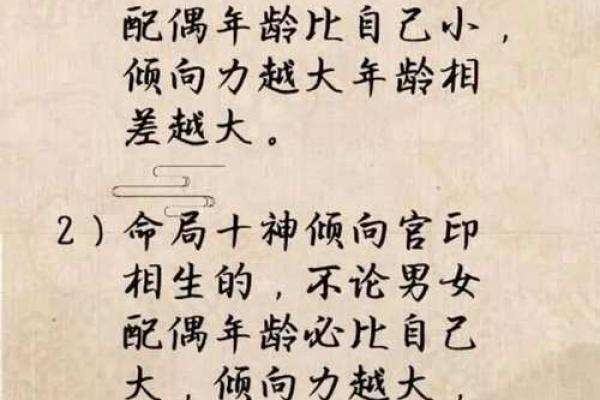 配偶年龄比自己小，
倾向力越大年龄相
差越大。
2）命局十神倾向官印
相生的，不论男女
配偶年龄必比自己
大，倾向力越大，